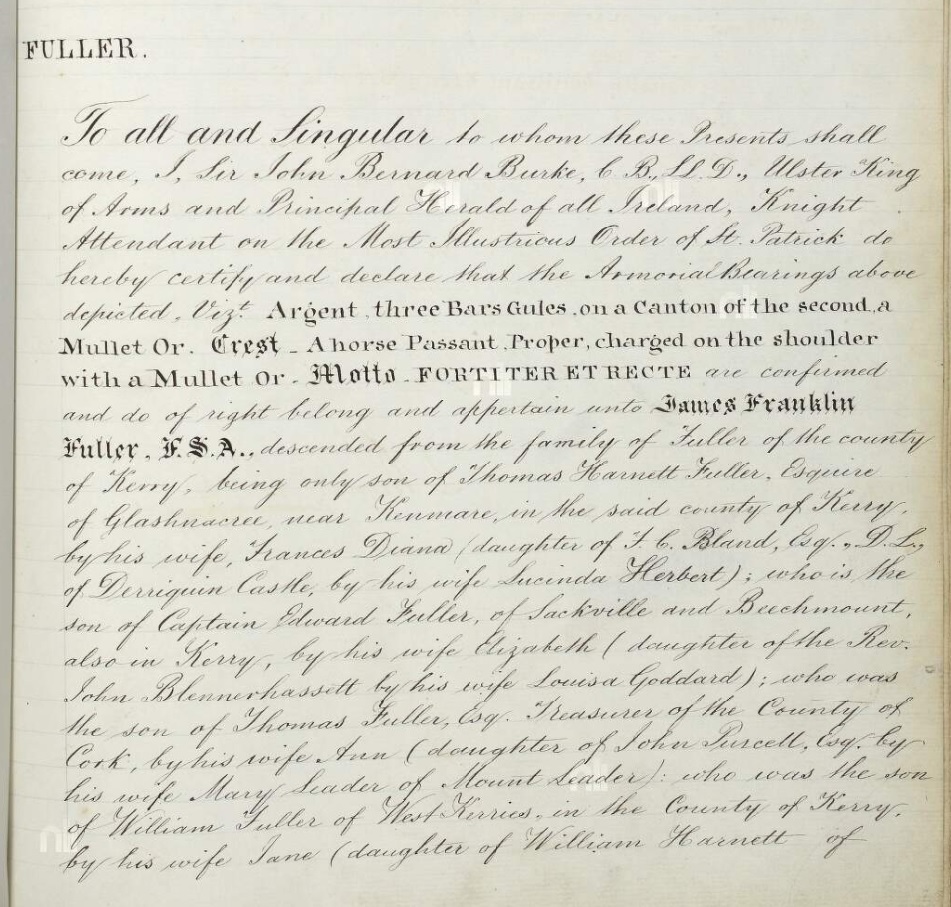 FULLER.
To all and Singular to whom these Presents shall
come, I, Sir John Bernard Burke, C.B., LL.D., Ulster King
of Arms and Principal Herald of all Ireland, Knight
Attendant on the Most Illustrious Order of St. Patrick do
hereby certify and declare that the Armorial Bearings above
depicted, Vizt. Argent, three Bars Gules, on a Canton of the second, a
Mullet Or. Crest - A horse Passant, Proper, charged on the shoulder
with a Mullet Or. Motto - FORTITER ET RECTE are confirmed
and do of right belong and appertain unto James Franklin
Fuller, F.S.A., descended from the family of Fuller of the county
of Kerry, being only son of Thomas Harnett Fuller, Esquire
of Glashnacree, near Kenmare, in the said county of Kerry,
by his wife, Frances Diana (daughter of F. C. Bland, Esq., D.L.,
of Derriquin Castle, by his wife Lucinda Herbert); who is the
son of Captain Edward Fuller, of Sackville and Beechmount,
also in Kerry, by his wife Elizabeth (daughter of the Rev.
John Blennerhassett by his wife Louisa Goddard); who was
the son of Thomas Fuller, Esq. Treasurer of the County of
Cork, by his wife Ann (daughter of John Purcell, Esq. by
his wife Mary Leader of Mount Leader): who was the son
of William Fuller of West Kerries, in the County of Kerry,
by his wife Jane (daughter of William Harnett of